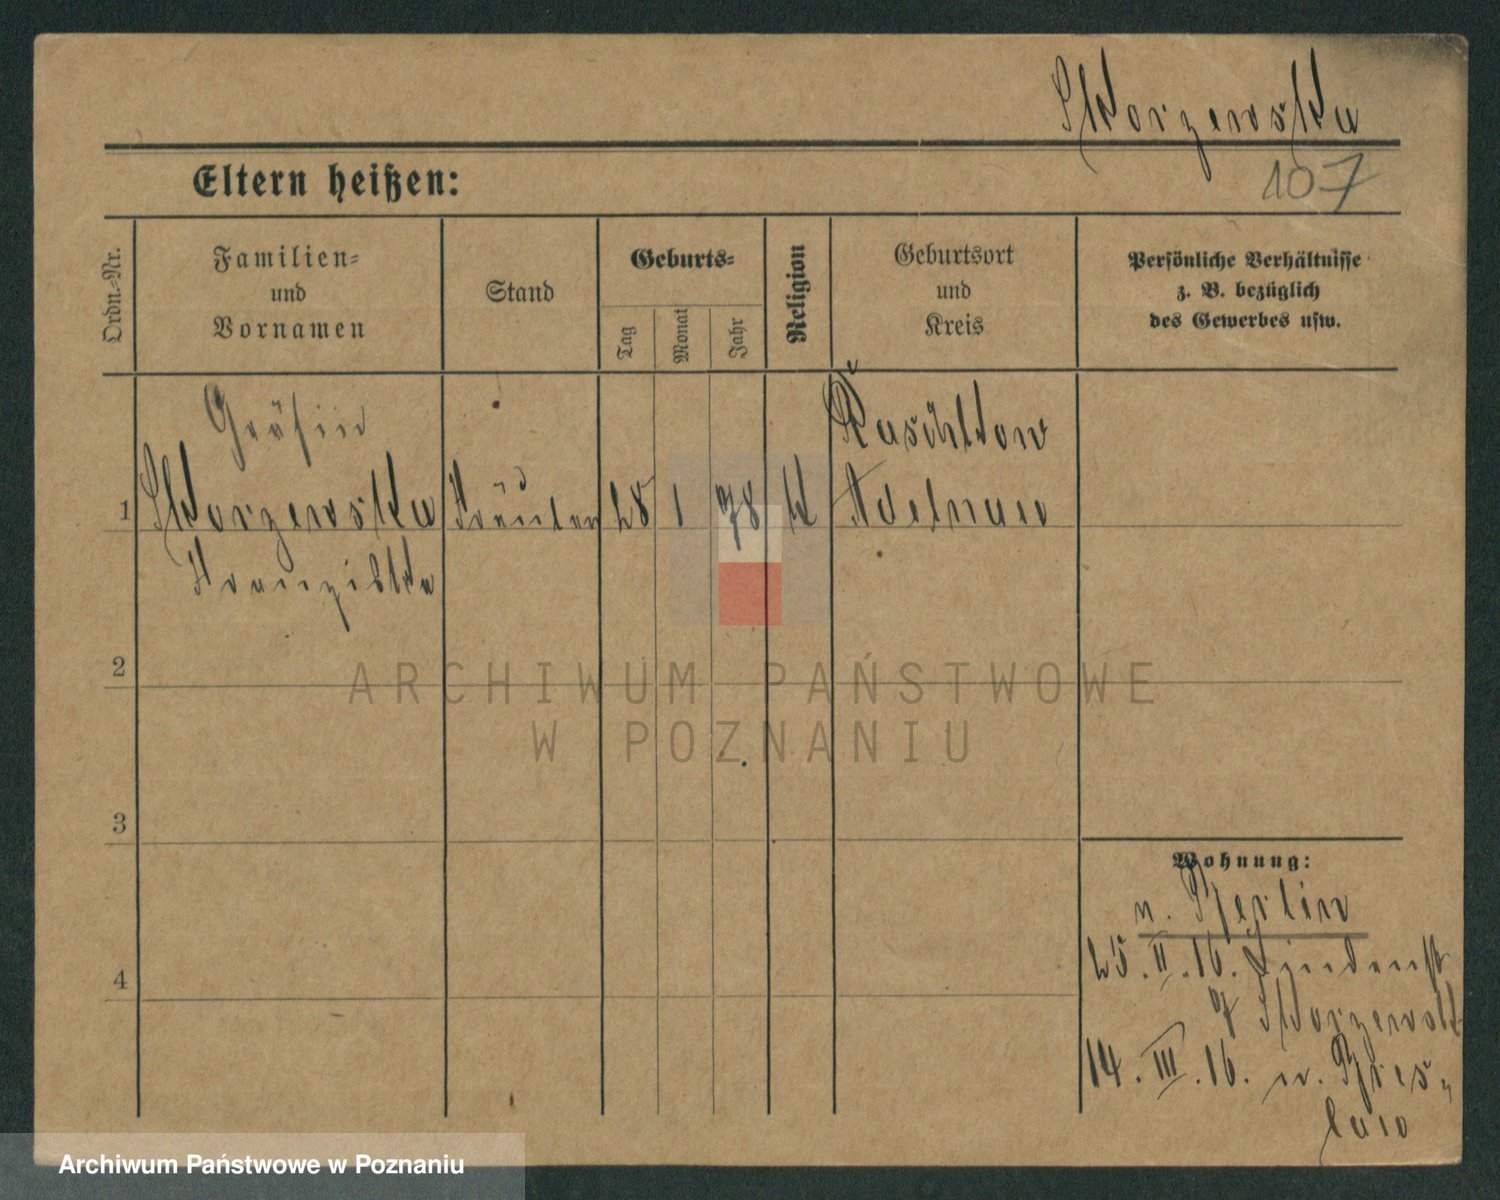 Skorzewska
107
Eltern heißen:
Ordn.-Nr.
Familien-
und
Vornamen
Stand
Geburts-
Tag
Monat
Jahr
Religion
Geburtsort
und
Kreis
Persönliche Verhältnisse
z. B. bezüglich
des Gewerbes usw.
Gräfin
1 Skorzewska 28 1 78 k Adelnau
Franziska
2
ARCHIWUM PAŃSTWOWE
W POZNANIU
3
4
Wohnung:
n. Berlin
25. II. 16. Lindenst
7 Skorzewski
14. III. 16. n. Bres-
lau
Archiwum Państwowe w Poznaniu